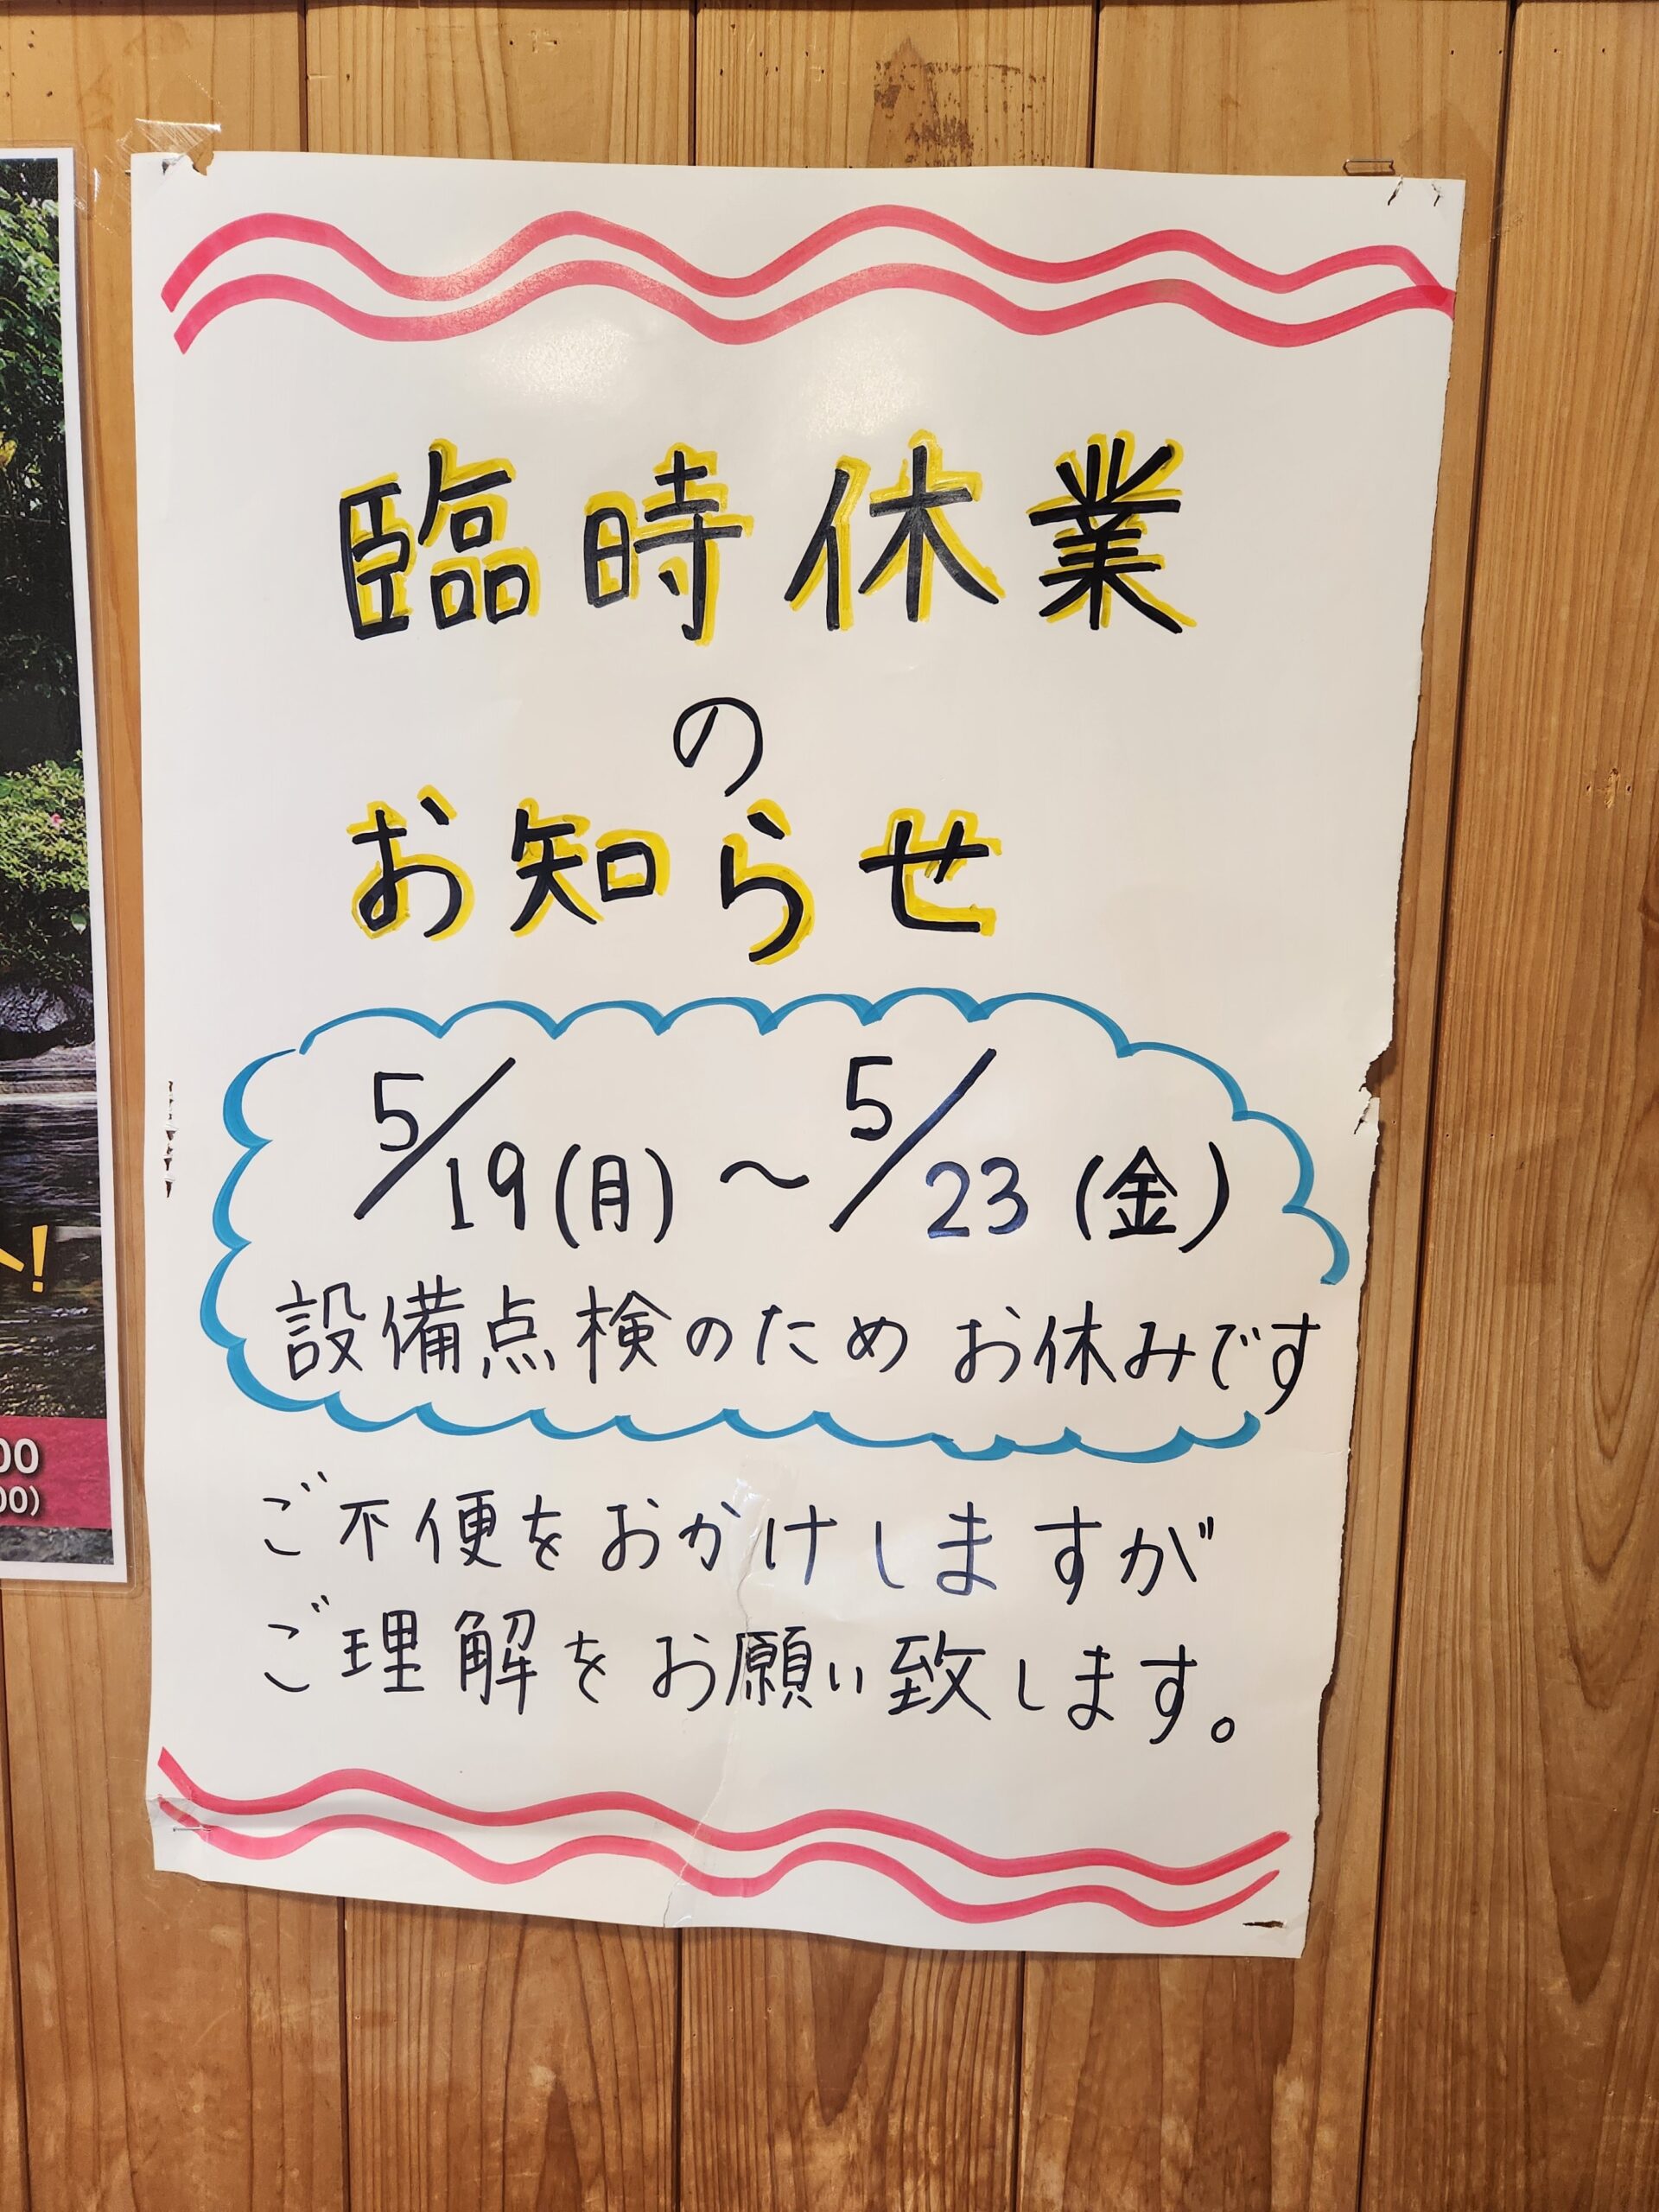 臨時休業
の
お知らせ
5/19(月)～5/23(金)
設備点検のためお休みです
ご不便をおかけしますが
ご理解をお願い致します。
!
00
00)